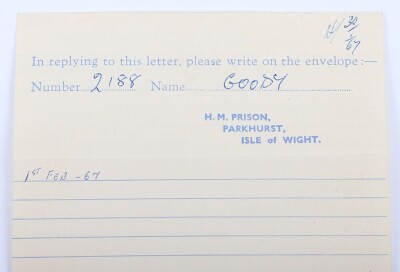 H/ 30/67
In replying to this letter, please write on the envelope:—
Number 2188 Name GOODY
H. M. PRISON,
PARKHURST,
ISLE of WIGHT.
1ST FEB - 67